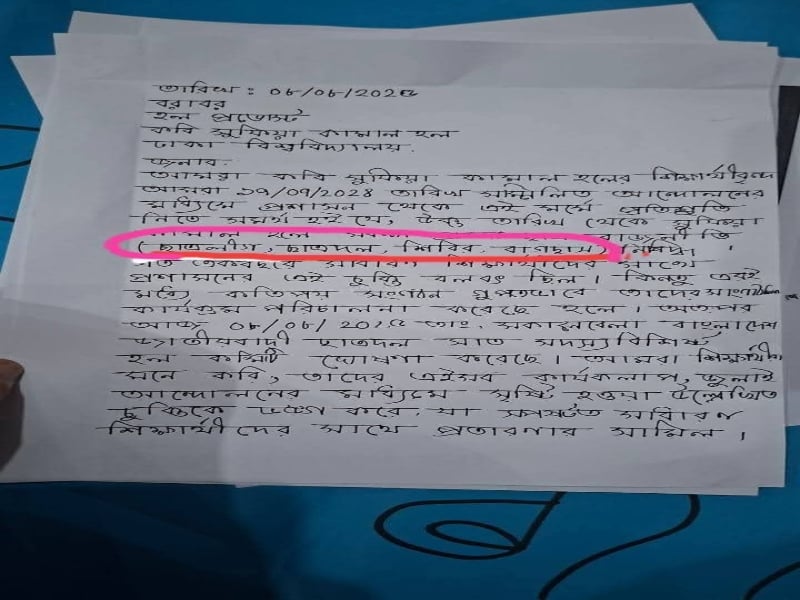 তারিখ : ০৮/০৮/২০২৫
বরাবর
হল প্রভোস্ট
কবি সুফিয়া কামাল হল
ঢাকা বিশ্ববিদ্যালয়.
জনাব,
আমরা কবি সুফিয়া কামাল হলের শিক্ষার্থীবৃন্দ
আমরা ১৭/০৭/২০২৪ তারিখ সম্মিলিত আন্দোলনের
মাধ্যমে প্রশাসন থেকে এই মর্মে প্রতিশ্রুতি
নিতে সমর্থ হই যে, উক্ত তারিখ থেকে সুফিয়া
কামাল হলে সকল রাজনীতি
(ছাত্রলীগ, ছাত্রদল, শিবির, বাগছাস) নিষিদ্ধ।
গত একবছরে সাধারণ শিক্ষার্থীদের সাথে
প্রশাসনের এই চুক্তি বলবৎ ছিল। কিন্তু এরই
মধ্যে কতিপয় সংগঠন গুপ্তভাবে তাদের সাংগঠনিক
কার্যক্রম পরিচালনা করেছে হলে। অতঃপর
আজ ০৮/০৮/২০২৫ তাং, সকালবেলা বাংলাদেশ
জাতীয়বাদী ছাত্রদল সাত সদস্যবিশিষ্ট
হল কমিটি ঘোষণা করেছে। আমরা শিক্ষার্থীরা
মনে করি, তাদের এইসব কার্যকলাপ, জুলাই
আন্দোলনের মাধ্যমে সৃষ্ট হওয়া উল্লেখিত
চুক্তিকে ভঙ্গ করে যা স্পষ্টত সাধারণ
শিক্ষার্থীদের সাথে প্রতারণার সামিল।